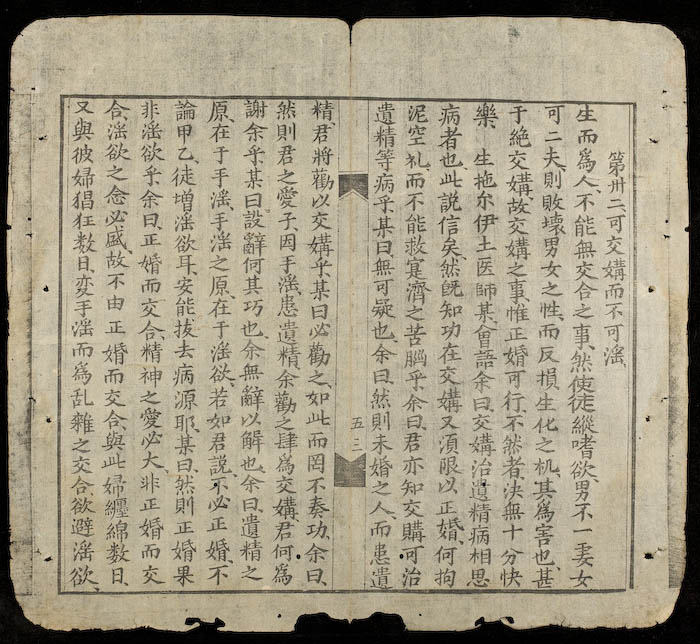 第卅二、可交媾而不可淫、
生而為人、不能無交合之事、然使徒縱嗜欲、男不一妻、女
可二夫、則敗壞男女之性、而反損生化之机、其為害也、甚
于絶交媾、故交媾之事、惟正婚可行、不然者、決無十分快
樂、生拖尔伊土医師某、會語余曰、交媾治遺精病相思
病者也、此説信矣、然既知功在交媾、又湏限以正婚、何拘
泥空礼、而不能救寔濟之苦腦乎、余曰、君亦知交購可治
遺精等病乎、某曰、無可疑也、余曰、然則未婚之人、而患遺
五三
精、君將勸以交媾乎、某曰、必勸之、如此而罔不奏功、余曰、
然則君之愛子、因手淫、患遺精、余勸之肆為交媾、君何為
謝余乎、某曰、設辭何其巧也、余無辭以解也、余曰、遺精之
原、在于手淫、手淫之原、在于淫欲、若如君説、不必正婚、不
論甲乙、徒増淫欲耳、安能拔去病源耶、某曰、然則正婚果
非淫欲乎、余曰、正婚而交合、精神之愛必大、非正婚而交
合、淫欲之念必盛、故不由正婚而交合、與此婦纏綿数日、
又與彼婦猖狂数日、变手淫而為乱雜之交合、欲避淫欲、